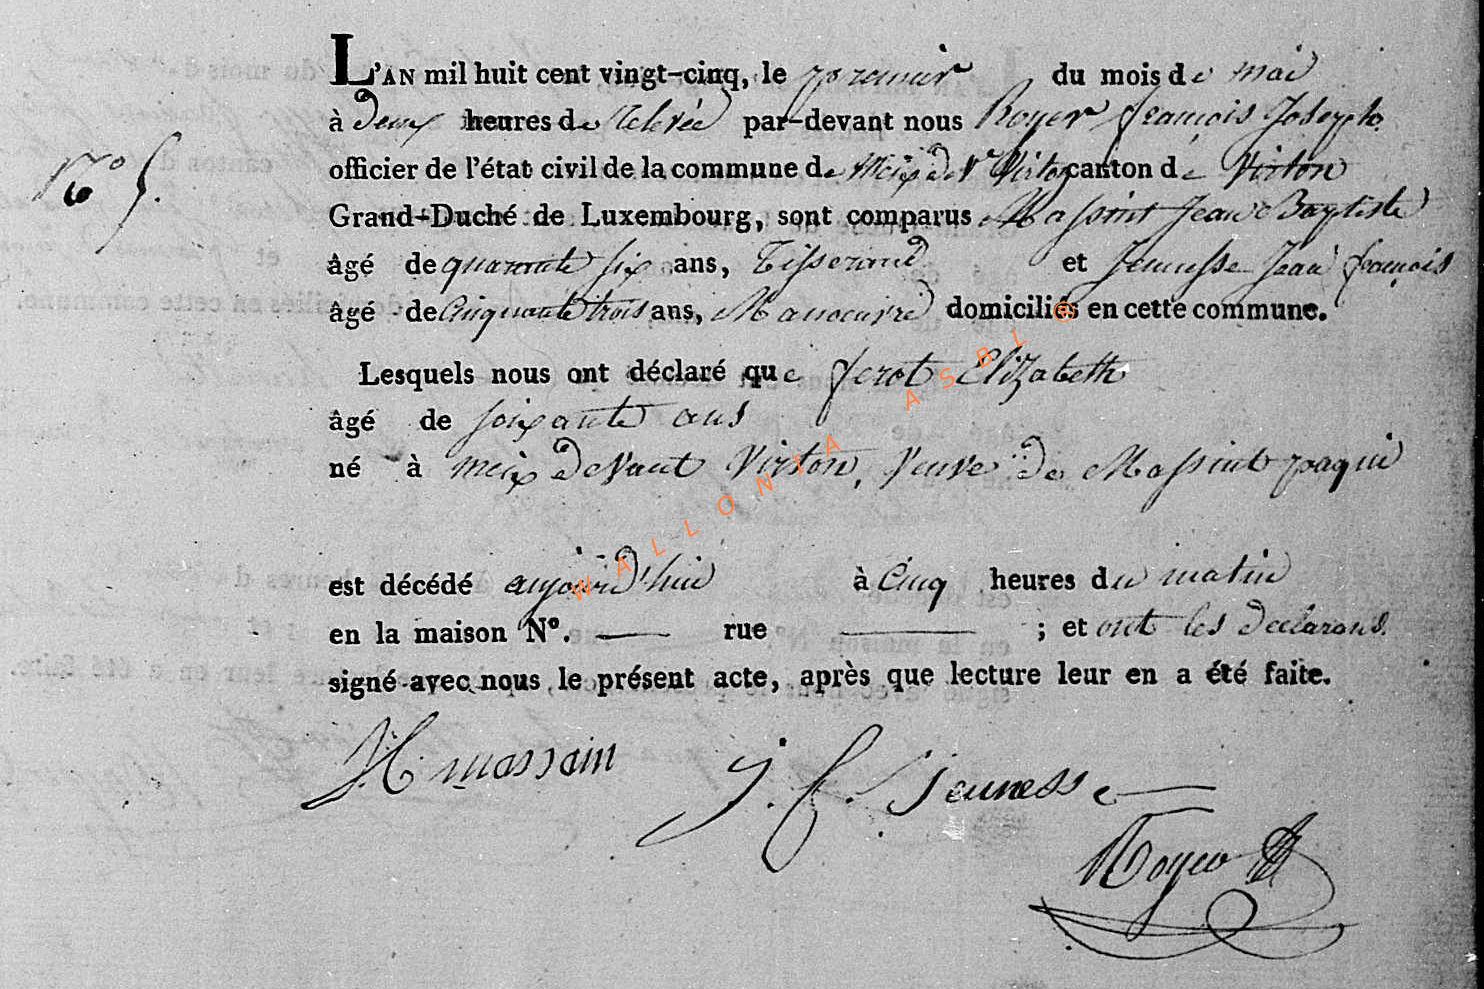 L'AN mil huit cent vingt-cinq, le premier du mois de mai
à deux heures de Relevée par-devant nous Royer françois Joseph
officier de l'état civil de la commune de Meix de Vt Virton canton de Virton
Grand-Duché de Luxembourg, sont comparus Massint Jean Baptiste
âgé de quarante six ans, Tisserand et Jeunesse Jean françois
âgé de Cinquante trois ans, Manoeuvre domiciliés en cette commune.
N° 5.
Lesquels nous ont déclaré que ferot Elizabeth
âgé de soixante ans
né à meix devant Virton, Veuve de Massint paquis
est décédé aujourd'hui à Cinq heures du matin
en la maison N°. — rue — ; et ont les declarans.
signé avec nous le présent acte, après que lecture leur en a été faite.
massain J. f. Jeunesse
Royer
WALLONIA ASBL ©